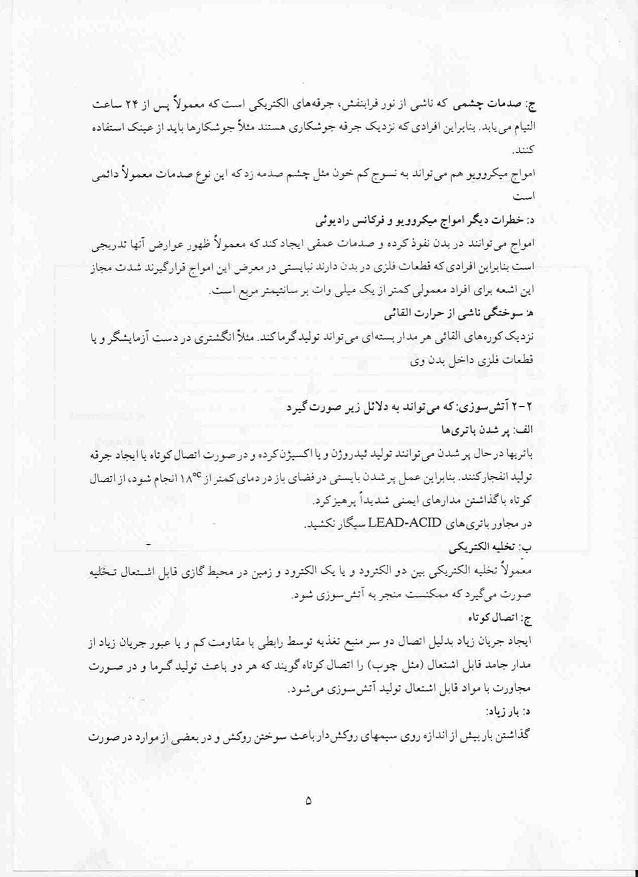 ج: صدمات چشمی که ناشی از نور فرابنفش، جرقه‌های الکتریکی است که معمولاً پس از ۲۴ ساعت
التیام می‌یابد. بنابراین افرادی که نزدیک جرقه جوشکاری هستند مثلاً جوشکارها باید از عینک استفاده
کنند.
امواج میکروویو هم می‌تواند به نسوج کم خون مثل چشم صدمه زد که این نوع صدمات معمولاً دائمی
است
د: خطرات دیگر امواج میکروویو و فرکانس رادیوئی
امواج می‌توانند در بدن نفوذ کرده و صدمات عمقی ایجاد کند که معمولاً ظهور عوارض آنها تدریجی
است بنابراین افرادی که قطعات فلزی در بدن دارند نبایستی در معرض این امواج قرار گیرند شدت مجاز
این اشعه برای افراد معمولی کمتر از یک میلی وات بر سانتیمتر مربع است.
ه: سوختگی ناشی از حرارت القائی
نزدیک کوره‌های القائی هر مدار بسته‌ای می‌تواند تولید گرما کند. مثلاً انگشتری در دست آزمایشگر و یا
قطعات فلزی داخل بدن وی
۲-۲ آتش‌سوزی: که می‌تواند به دلائل زیر صورت گیرد
الف: پر شدن باتری‌ها
باتریها در حال پر شدن می‌توانند تولید ئیدروژن و یا اکسیژن کرده و در صورت اتصال کوتاه یا ایجاد جرقه
تولید انفجار کنند. بنابراین عمل پر شدن بایستی در فضای باز در دمای کمتر از ۱۸°c انجام شود، از اتصال
کوتاه با گذاشتن مدارهای ایمنی شدیداً پرهیز کرد.
در مجاور باتری‌های LEAD-ACID سیگار نکشید.
ب: تخلیه الکتریکی
معمولاً تخلیه الکتریکی بین دو الکترود و یا یک الکترود و زمین در محیط گازی قابل اشتعال تخلیه
صورت می‌گیرد که ممکنست منجر به آتش‌سوزی شود.
ج: اتصال کوتاه
ایجاد جریان زیاد بدلیل اتصال دو سر منبع تغذیه توسط رابطی با مقاومت کم و یا عبور جریان زیاد از
مدار جامد قابل اشتعال (مثل چوب) را اتصال کوتاه گویند که هر دو باعث تولید گرما و در صورت
مجاورت با مواد قابل اشتعال تولید آتش‌سوزی می‌شود.
د: بار زیاد:
گذاشتن بار بیش از اندازه روی سیمهای روکش‌دار باعث سوختن روکش و در بعضی از موارد در صورت
۵